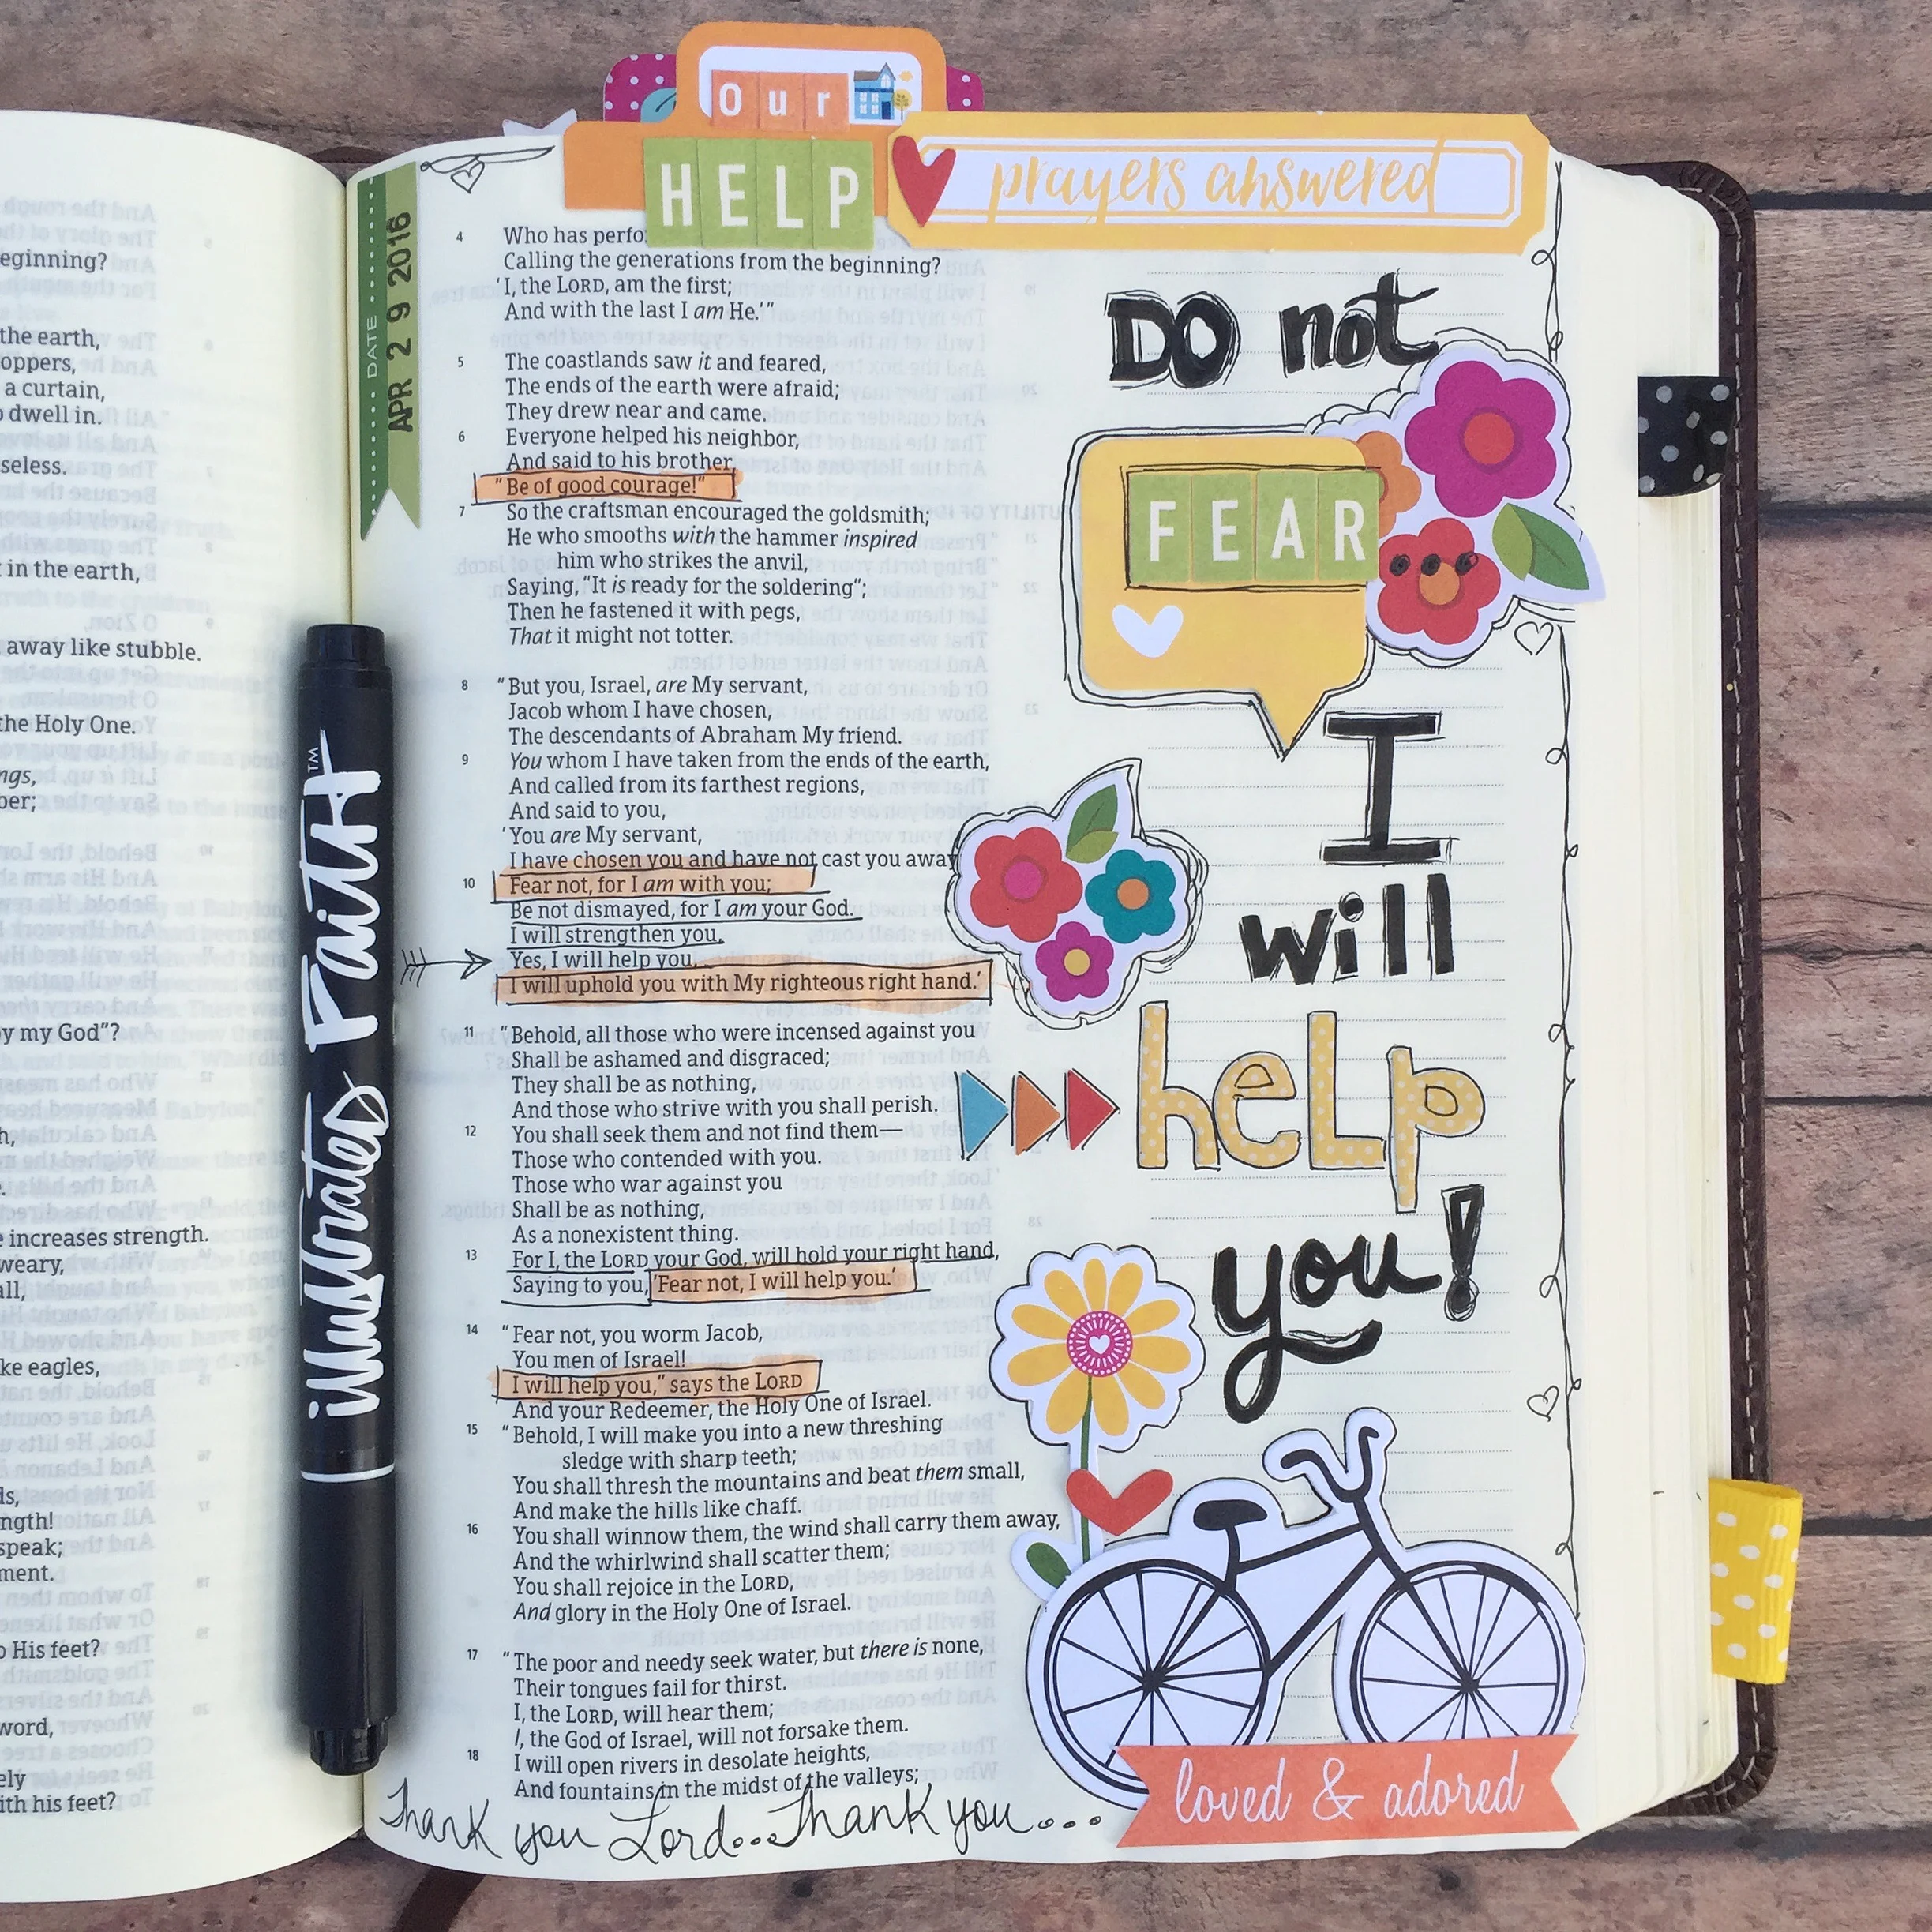 Our
HELP
prayers answered
DATE
APR 2 9 2016
4 Who has perfo
Calling the generations from the beginning?
'I, the LORD, am the first;
And with the last I am He.'"
5 The coastlands saw it and feared,
The ends of the earth were afraid;
They drew near and came.
6 Everyone helped his neighbor,
And said to his brother,
"Be of good courage!"
7 So the craftsman encouraged the goldsmith;
He who smooths with the hammer inspired
him who strikes the anvil,
Saying, "It is ready for the soldering";
Then he fastened it with pegs,
That it might not totter.
8 "But you, Israel, are My servant,
Jacob whom I have chosen,
The descendants of Abraham My friend.
9 You whom I have taken from the ends of the earth,
And called from its farthest regions,
And said to you,
'You are My servant,
I have chosen you and have not cast you away
10 Fear not, for I am with you;
Be not dismayed, for I am your God.
I will strengthen you,
Yes, I will help you,
I will uphold you with My righteous right hand.'
11 "Behold, all those who were incensed against you
Shall be ashamed and disgraced;
They shall be as nothing,
And those who strive with you shall perish.
12 You shall seek them and not find them—
Those who contended with you.
Those who war against you
Shall be as nothing,
As a nonexistent thing.
13 For I, the LORD your God, will hold your right hand,
Saying to you, 'Fear not, I will help you.'
14 "Fear not, you worm Jacob,
You men of Israel!
I will help you," says the LORD
And your Redeemer, the Holy One of Israel.
15 "Behold, I will make you into a new threshing
sledge with sharp teeth;
You shall thresh the mountains and beat them small,
And make the hills like chaff.
16 You shall winnow them, the wind shall carry them away,
And the whirlwind shall scatter them;
You shall rejoice in the LORD,
And glory in the Holy One of Israel.
17 "The poor and needy seek water, but there is none,
Their tongues fail for thirst.
I, the LORD, will hear them;
I, the God of Israel, will not forsake them.
18 I will open rivers in desolate heights,
And fountains in the midst of the valleys;
Thank you Lord...Thank you....
DO not
FEAR
I
will
heLp
you!
loved & adored
illustrated Faith™
eginning?
the earth,
oppers,
a curtain,
dwell in.
seless.
in the earth,
away like stubble.
the Holy One.
ngs,
ber;
y my God"?
h,
e increases strength.
weary,
all,
ke eagles,
ds,
ngth!
speak;
ment.
o His feet?
word,
ely
ith his feet?